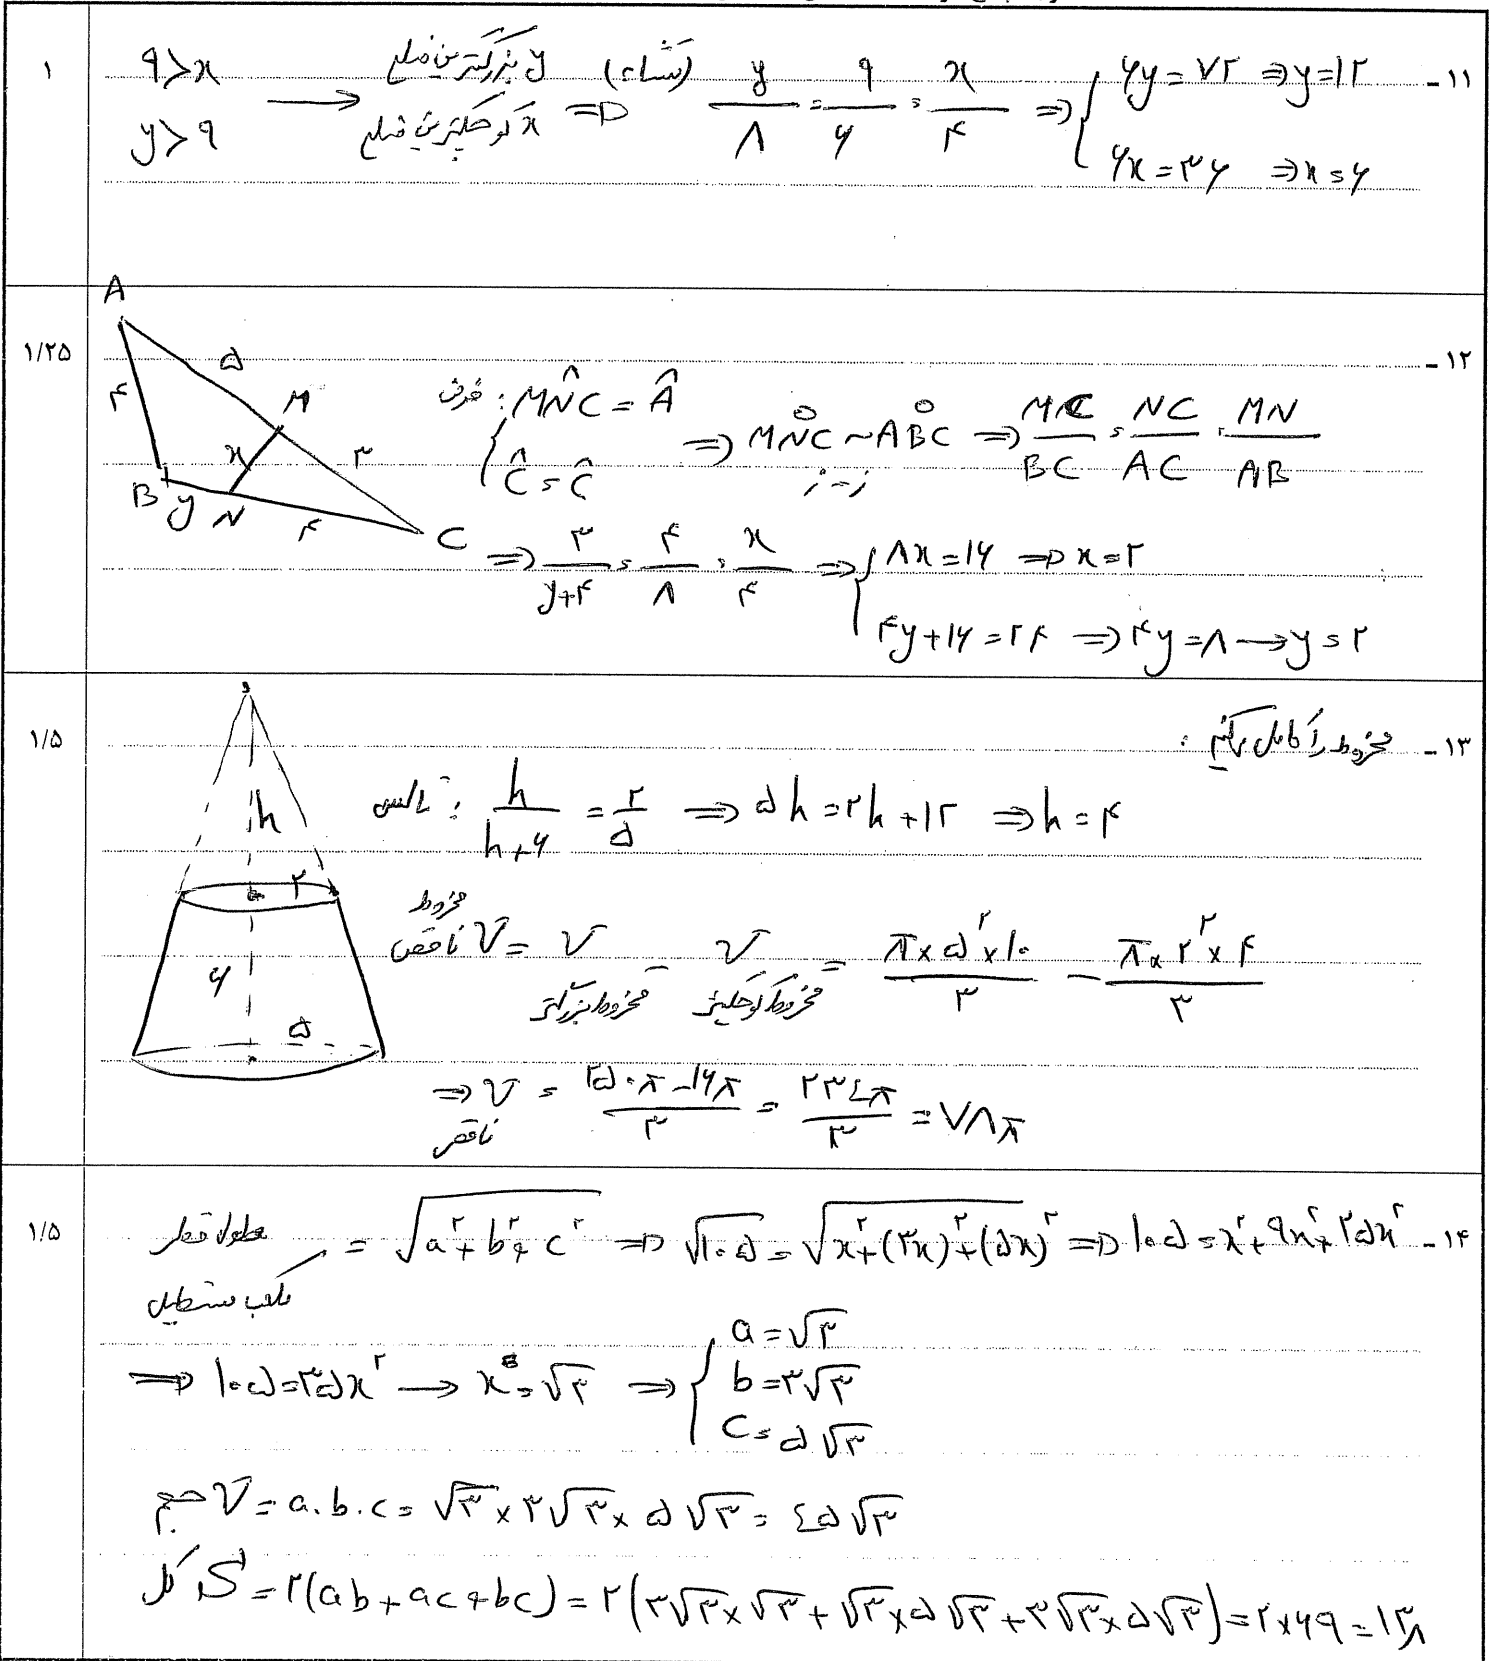 ۱۱- ۹>x y>۹ → y بزرگترین ضلع x کوچکترین ضلع ⇒ (تشابه) y/۸ = ۹/۶ = x/۴ ⇒ { ۶y = ۷۲ ⇒ y=۱۲
۶x = ۳۶ ⇒ x = ۶
۱
۱۲-
۱/۲۵
A ۵ M ۳ C ۴ N y B ۴ x
فرض: MN̂C = Â
Ĉ = Ĉ
⇒ MNC ~ ABC ⇒ MC/BC = NC/AC = MN/AB
ز-ز
⇒ ۳/(y+۴) = ۴/۸ = x/۴ ⇒ { ۸x = ۱۶ ⇒ x = ۲
۴y + ۱۶ = ۲۴ ⇒ ۴y = ۸ → y = ۲
۱۳- مخروط را کامل میکنیم :
۱/۵
h ۲ ۶ ۵
تالس : h/(h+۶) = ۲/۵ ⇒ ۵h = ۲h + ۱۲ ⇒ h = ۴
V مخروط ناقص = V مخروط بزرگتر - V مخروط کوچکتر = (π×۵²×۱۰)/۳ - (π×۲²×۴)/۳
⇒ V ناقص = (۲۵۰π - ۱۶π)/۳ = ۲۳۴π/۳ = ۷۸π
۱۴- طول قطر مکعب مستطیل = √(a²+b²+c²) ⇒ √۱۰۵ = √(x²+(۳x)²+(۵x)²) ⇒ ۱۰۵ = x²+۹x²+۲۵x²
۱/۵
⇒ ۱۰۵ = ۳۵x² → x = √۳ ⇒ { a = √۳
b = ۳√۳
c = ۵√۳
حجم V = a.b.c = √۳ × ۳√۳ × ۵√۳ = ۴۵√۳
S کل = ۲(ab + ac + bc) = ۲(۳√۳×√۳ + √۳×۵√۳ + ۳√۳×۵√۳) = ۲×۶۹ = ۱۳۸